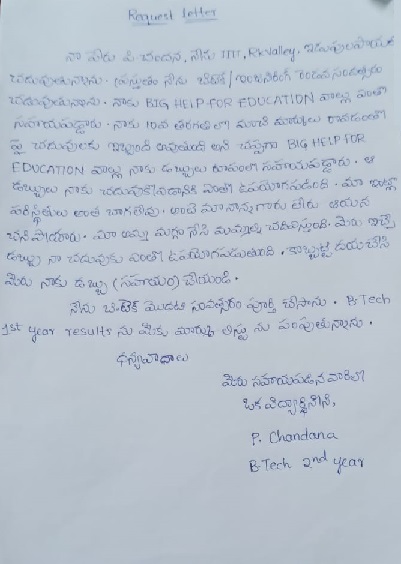 Request letter
నా పేరు పి. చందన, నేను IIIT, Rk valley, ఇడుపులపాయలో
చదువుతున్నాను. ప్రస్తుతం నేను బిటెక్/ఇంజనీరింగ్ రెండవ సంవత్సరం
చదువుతున్నాను. నాకు BIG HELP FOR EDUCATION వాళ్ళు ఎంతో
సహాయపడ్డారు. నాకు 10వ తరగతిలో మంచి మార్కులు రావడంతో
పై చదువులకు ఇబ్బంది అవుతుంది అని చెప్పగా BIG HELP FOR
EDUCATION వాళ్ళు నాకు డబ్బులు రూపంలో సహాయపడ్డారు. ఆ
డబ్బులు నాకు చదువుకోవడానికి ఎంతో ఉపయోగపడింది. మా ఇంట్లో
పరిస్థితులు అంత బాగలేవు. అంటే మా నాన్నగారు లేరు ఆయన
చనిపోయారు. మా అమ్మ మగ్గం నేసి మమ్మల్ని చదివిస్తుంది. మీరు ఇచ్చే
డబ్బు నా చదువుకు ఎంతో ఉపయోగపడుతుంది. కాబట్టి దయచేసి
మీరు నాకు డబ్బు (సహాయం) చేయండి.
నేను బి.టెక్ మొదటి సంవత్సరం పూర్తి చేసాను. B.Tech
1st year results ను మీకు మార్కు లిస్టు ను పంపుతున్నాను.
ధన్యవాదాలు
మీరు సహాయపడిన వారిలో
ఒక విద్యార్థినిని,
P. Chandana
B.Tech 2nd year